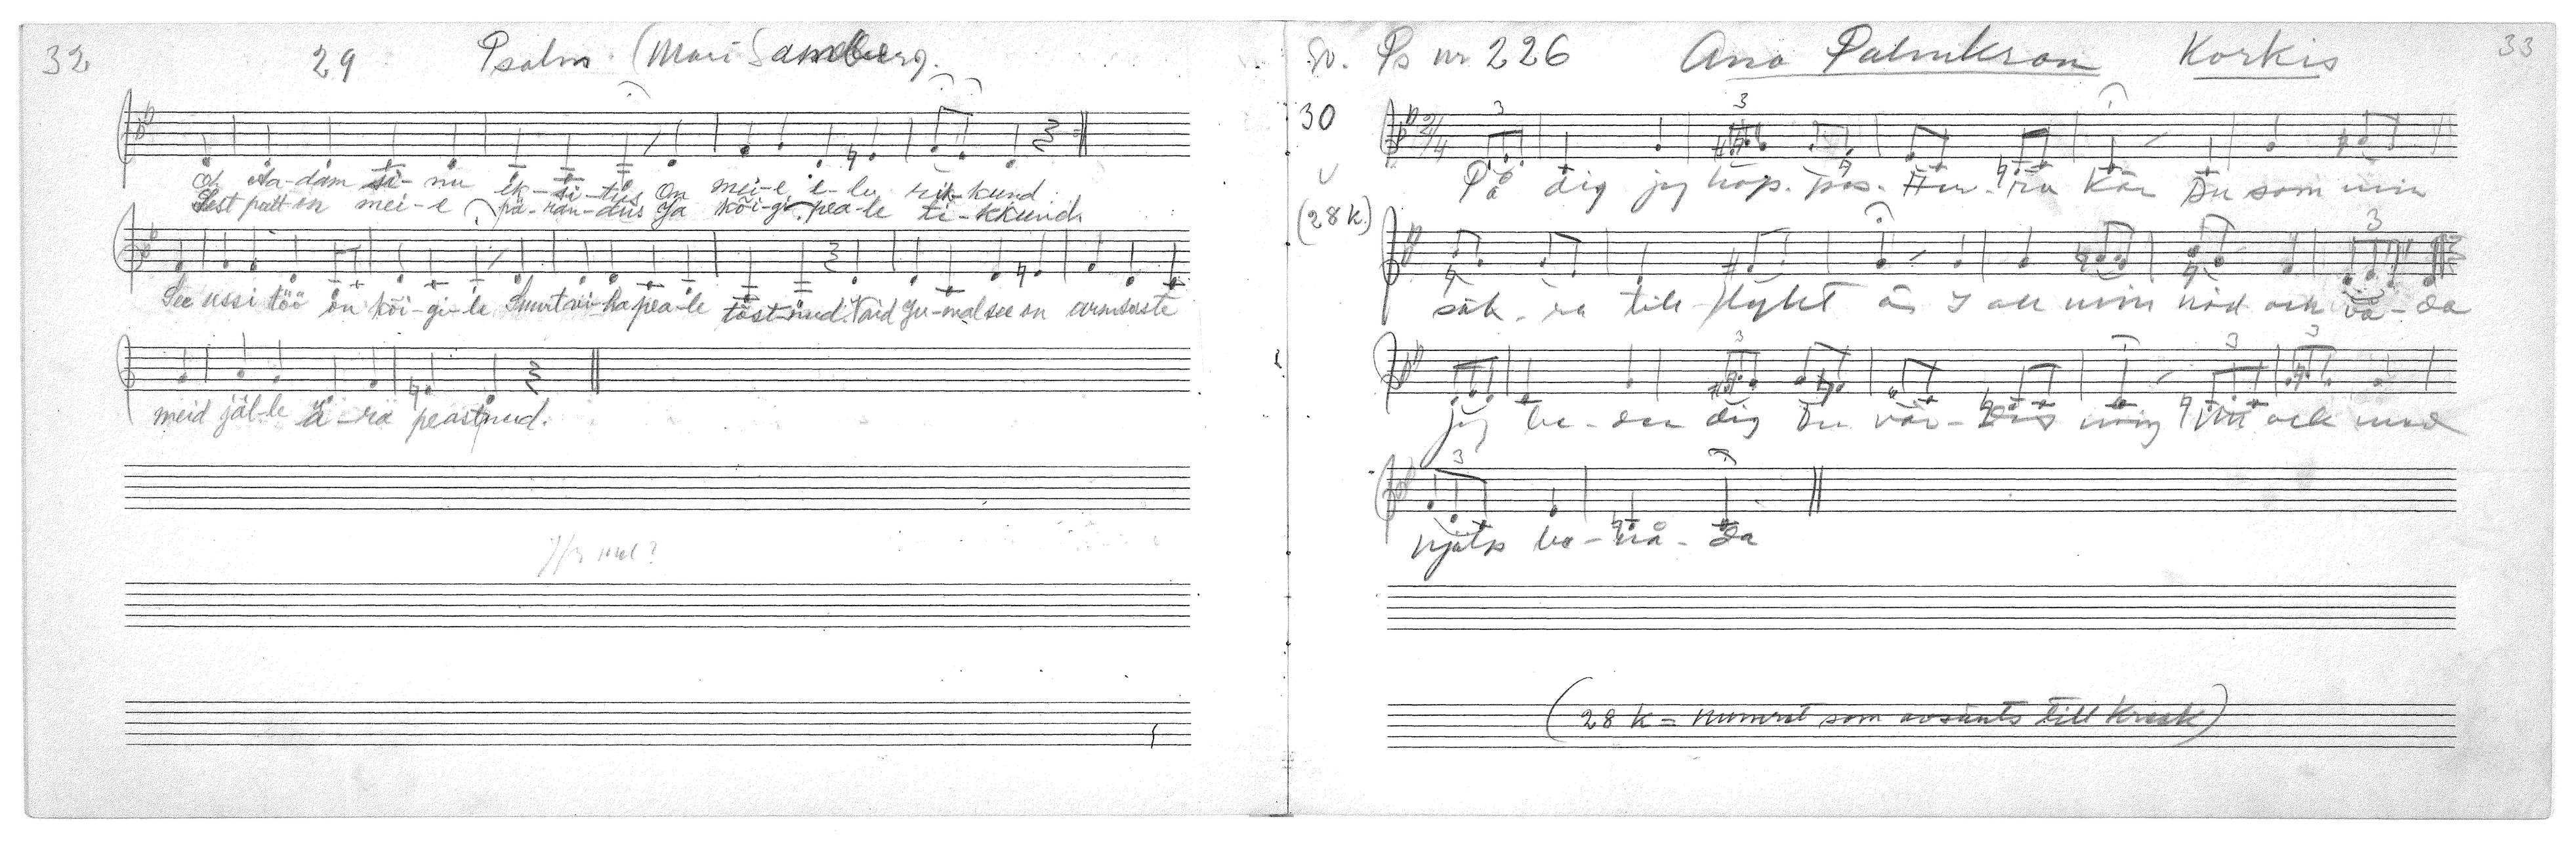 32 29 Psalm (Mari Sandberg).
Oh Aa-dam si-nu ek-si-tus On mei-e e-lu rik-kund
Sest patt on mei-e pä-ran-dus Ja kõi-gi pea-le ti-kkund.
See ussi töö on kõi-gi-le Suurt vi-ha pea-le tõst-nud. Vaid Ju-mal see on armsaste
meid jäl-le ä-ra peastnud.
Sv. Ps nr 226 Ana Palmkron Korkis 33
30
På dig jeg hop-pas Her-ra kär Du som min
(28 k.)
säk-ra till-flykt är I all min nöd och vå-da
jeg be-der dig Du vär-des mig med
hjälp be-nå-da
(28 k = numret som avsänts till Kreek)